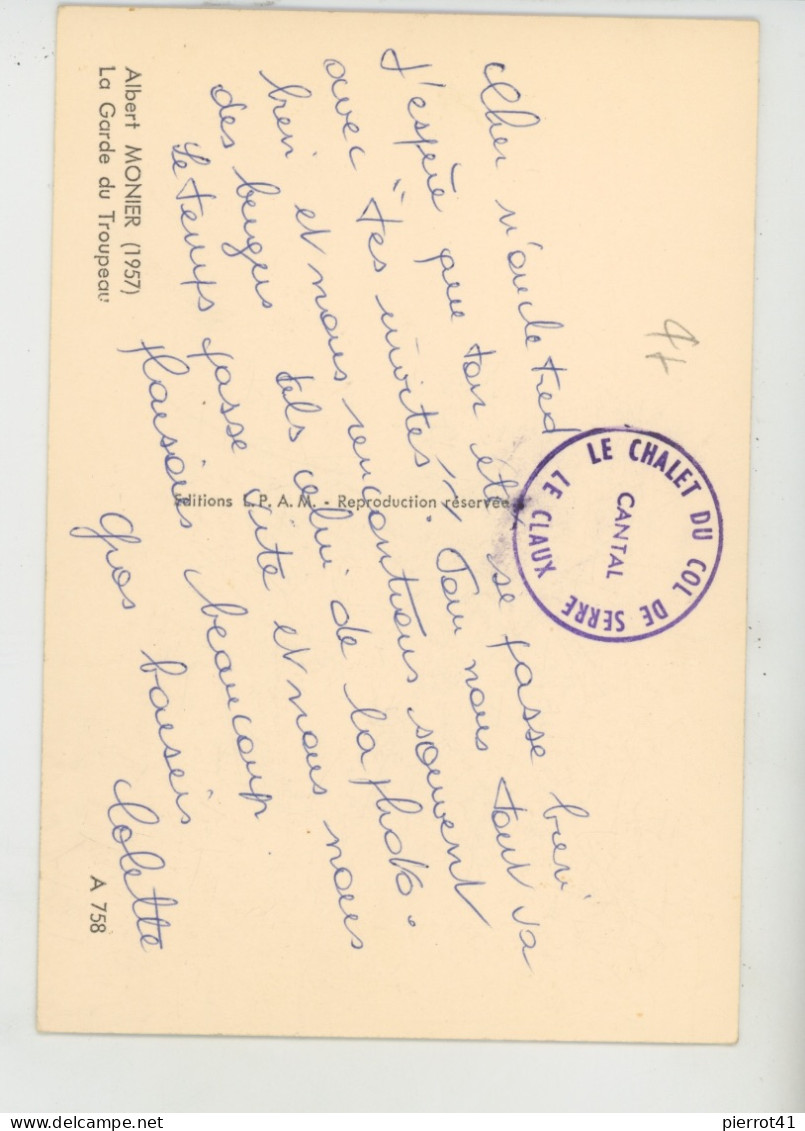 Cher n'oncle Fred
J'espère que ton été se passe bien
avec "tes invités"! Pour nous tout va
bien et nous rencontrons souvent
des bergers tels celui de la photo.
Le temps passe vite et nous nous
plaisons beaucoup
Gros baisers
Colette
LE CHALET DU COL DE SERRE
CANTAL
LE CLAUX
Editions L.P.A.M. - Reproduction réservée
Albert MONIER (1957)
La Garde du Troupeau
A 758
pierrot41